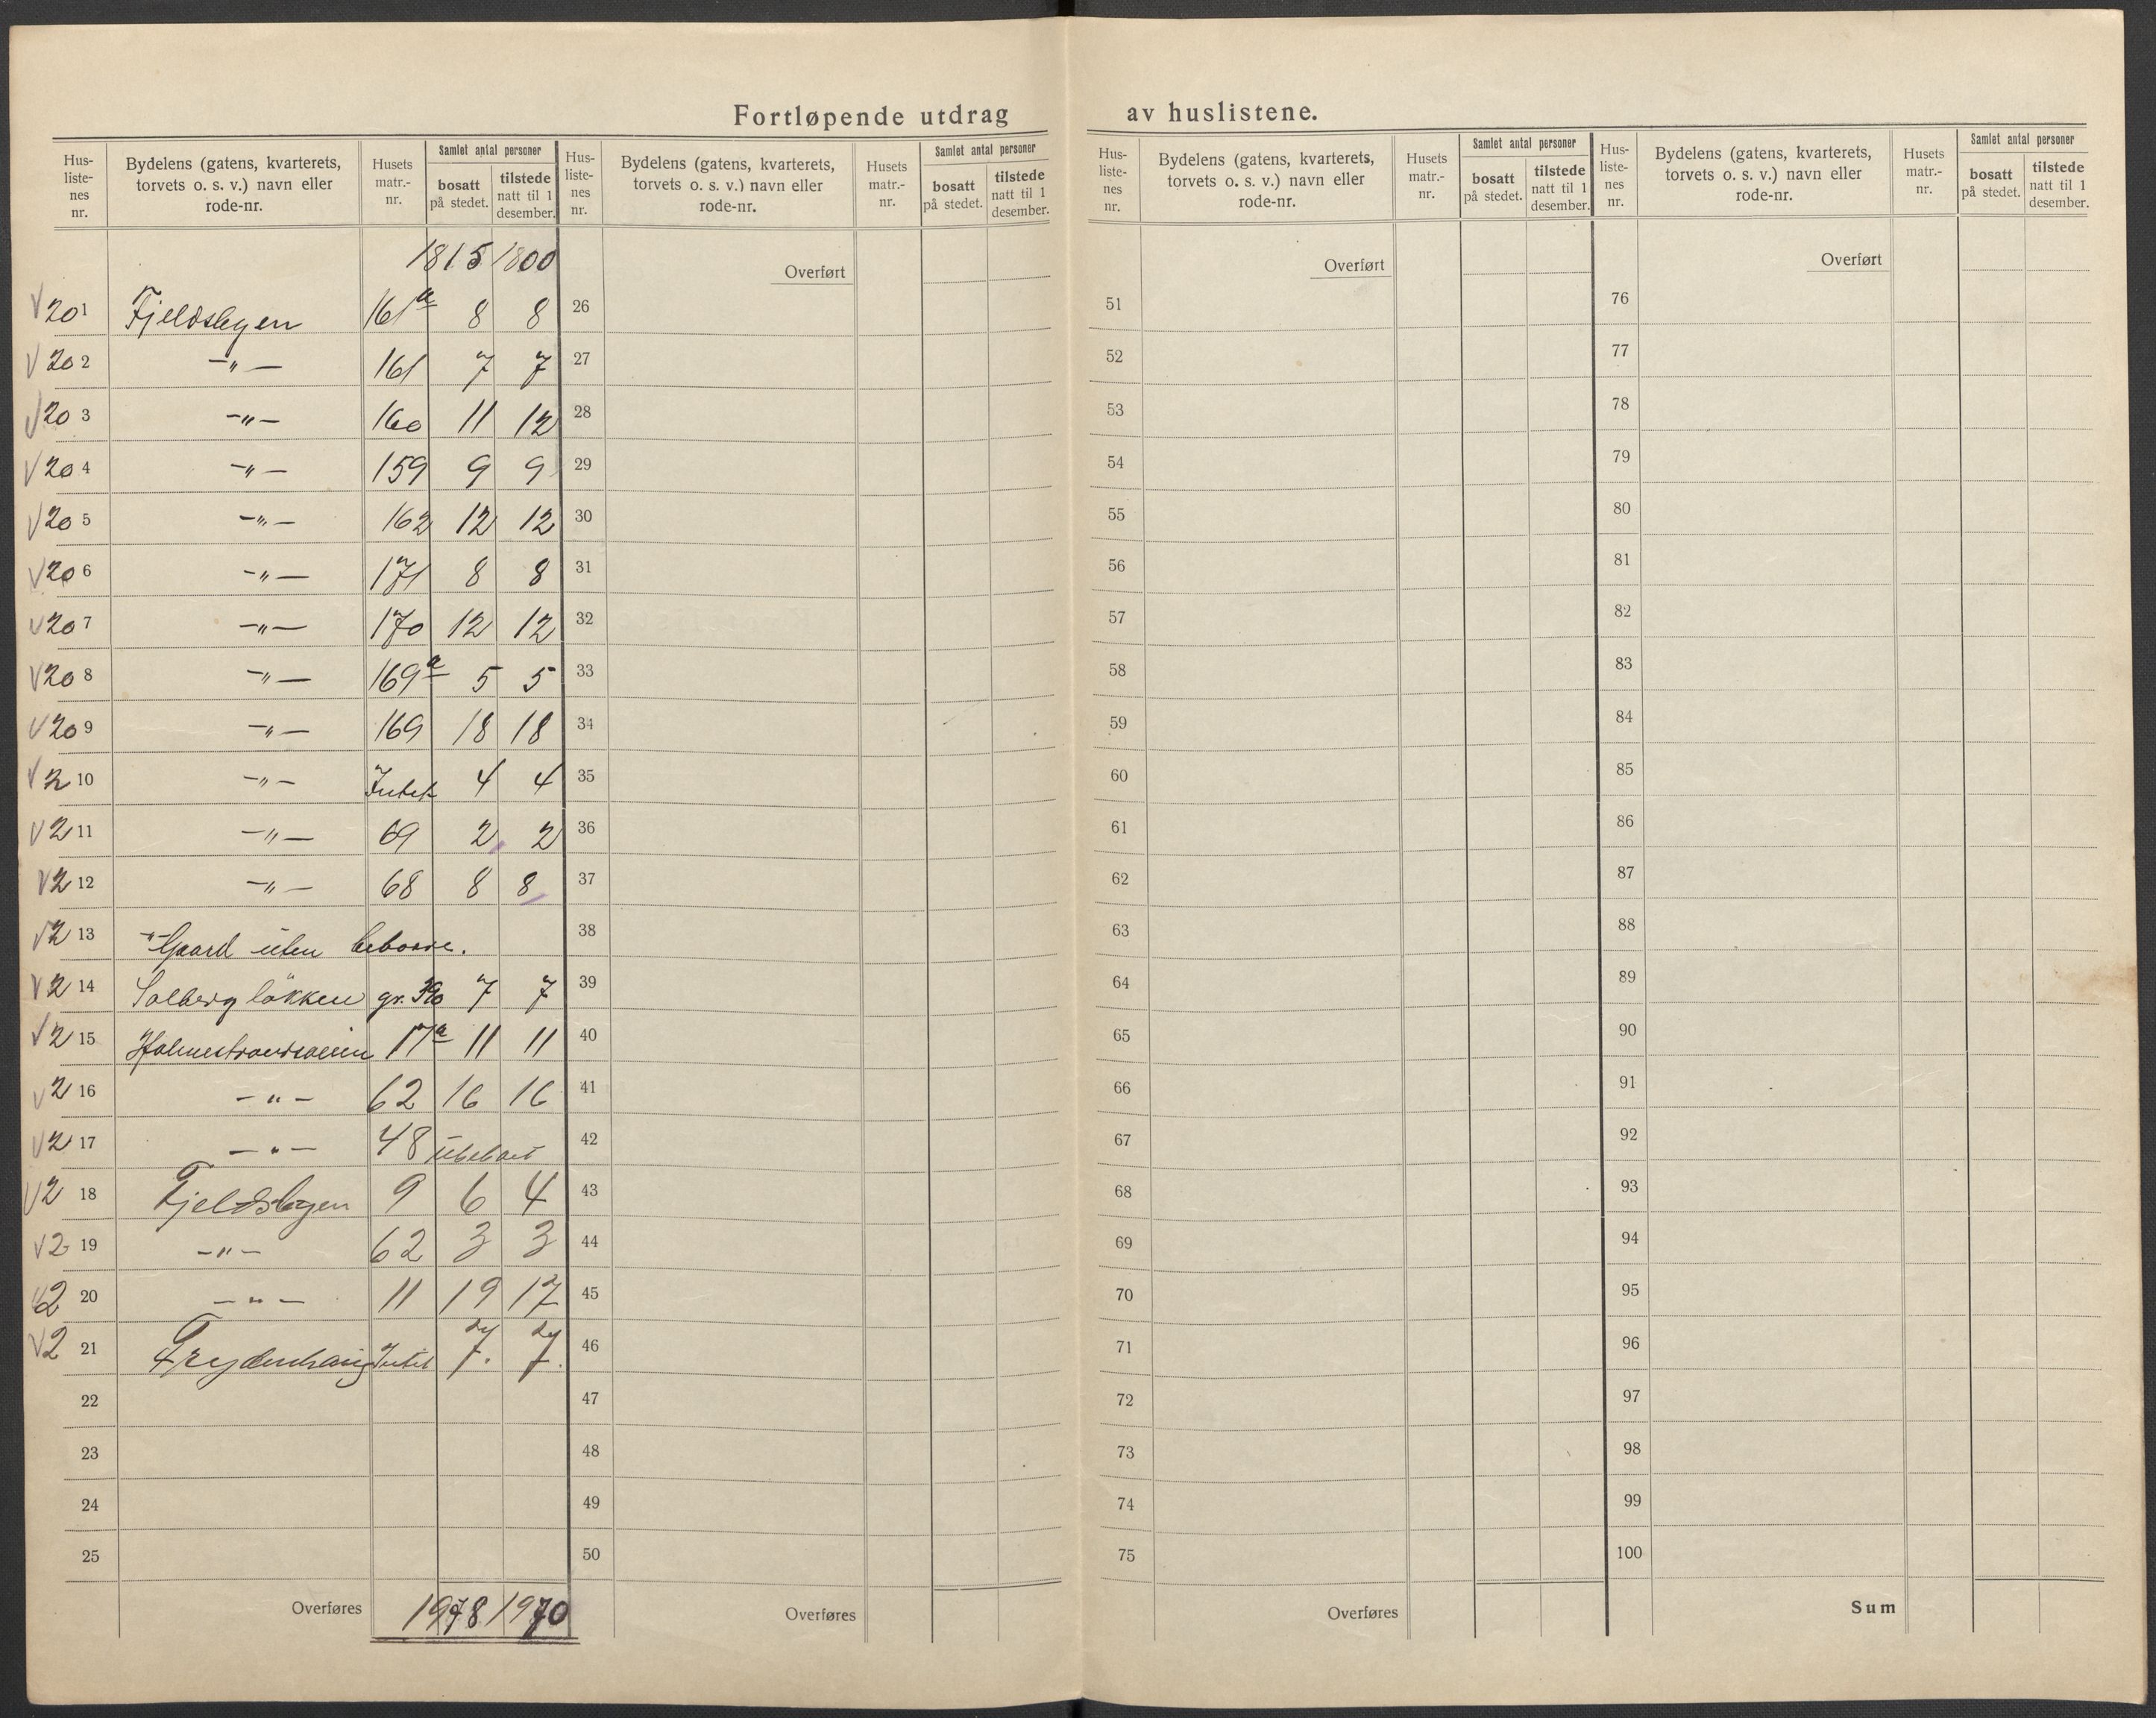 Fortløpende utdrag av huslistene.
Hus-listenes nr. Bydelens (gatens, kvarterets, torvets o. s. v.) navn eller rode-nr. Husets matr.-nr. Samlet antal personer bosatt på stedet. tilstede natt til 1 desember.
Hus-listenes nr. Bydelens (gatens, kvarterets, torvets o. s. v.) navn eller rode-nr. Husets matr.-nr. Samlet antal personer bosatt på stedet. tilstede natt til 1 desember.
Hus-listenes nr. Bydelens (gatens, kvarterets, torvets o. s. v.) navn eller rode-nr. Husets matr.-nr. Samlet antal personer bosatt på stedet. tilstede natt til 1 desember.
Hus-listenes nr. Bydelens (gatens, kvarterets, torvets o. s. v.) navn eller rode-nr. Husets matr.-nr. Samlet antal personer bosatt på stedet. tilstede natt til 1 desember.
1815 1800 Overført Overført Overført
V 201 Fjeldsbyen 161a 8 8 26 51 76
V 20 2 -"- 161 7 7 27 52 77
V 20 3 -"- 160 11 12 28 53 78
V 20 4 -"- 159 9 9 29 54 79
V 20 5 -"- 162 12 12 30 55 80
V 20 6 -"- 171 8 8 31 56 81
V 20 7 -"- 170 12 12 32 57 82
V 20 8 -"- 169a 5 5 33 58 83
V 20 9 -"- 169 18 18 34 59 84
V 2 10 -"- Intet 4 4 35 60 85
V 2 11 -"- 69 2 2 36 61 86
V 2 12 -"- 68 8 8 37 62 87
V 2 13 -"- Gaard uten beboere. 38 63 88
V 2 14 Solberg løkken gr. 390 7 7 39 64 89
V 2 15 Holmestrandsveien 17a 11 11 40 65 90
V 2 16 -"- 62 16 16 41 66 91
V 2 17 -"- 48 ubeboet 42 67 92
V 2 18 Fjeldsbyen 9 6 4 43 68 93
V 2 19 -"- 62 3 3 44 69 94
V 2 20 -"- 11 19 17 45 70 95
V 2 21 Frydenhaug Intet 7. 7. 46 71 96
22 47 72 97
23 48 73 98
24 49 74 99
25 50 75 100
Overføres 1978 1970 Overføres Overføres Sum